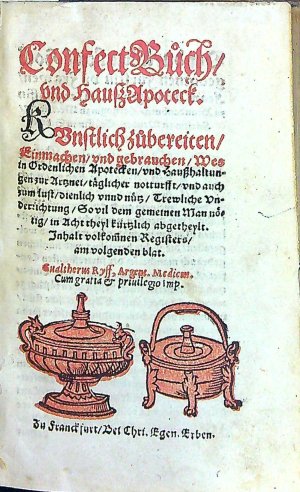 Confect Bůch/
vnd Haußz Apoteck.
KVnstlich zůbereiten/
Einmachen/vnd gebrauchen/Wes
in Ordenlichen Apotecken/vnd Haußhaltun-
gen zur Artznei/täglicher notturfft/vnd auch
zum lust/dienlich vnnd nütz/Trewliche Vn-
derrichtung/So vil dem gemeinen Man nö-
tig/in Acht theyl kürtzlich abgetheylt.
Inhalt volkom̃nen Registers/
am volgenden blat.
Gualtherus Ryff, Argent. Medicus.
Cum gratia & priuilegio imp.
Zu Franckfurt/Bei Chri. Egen. Erben.